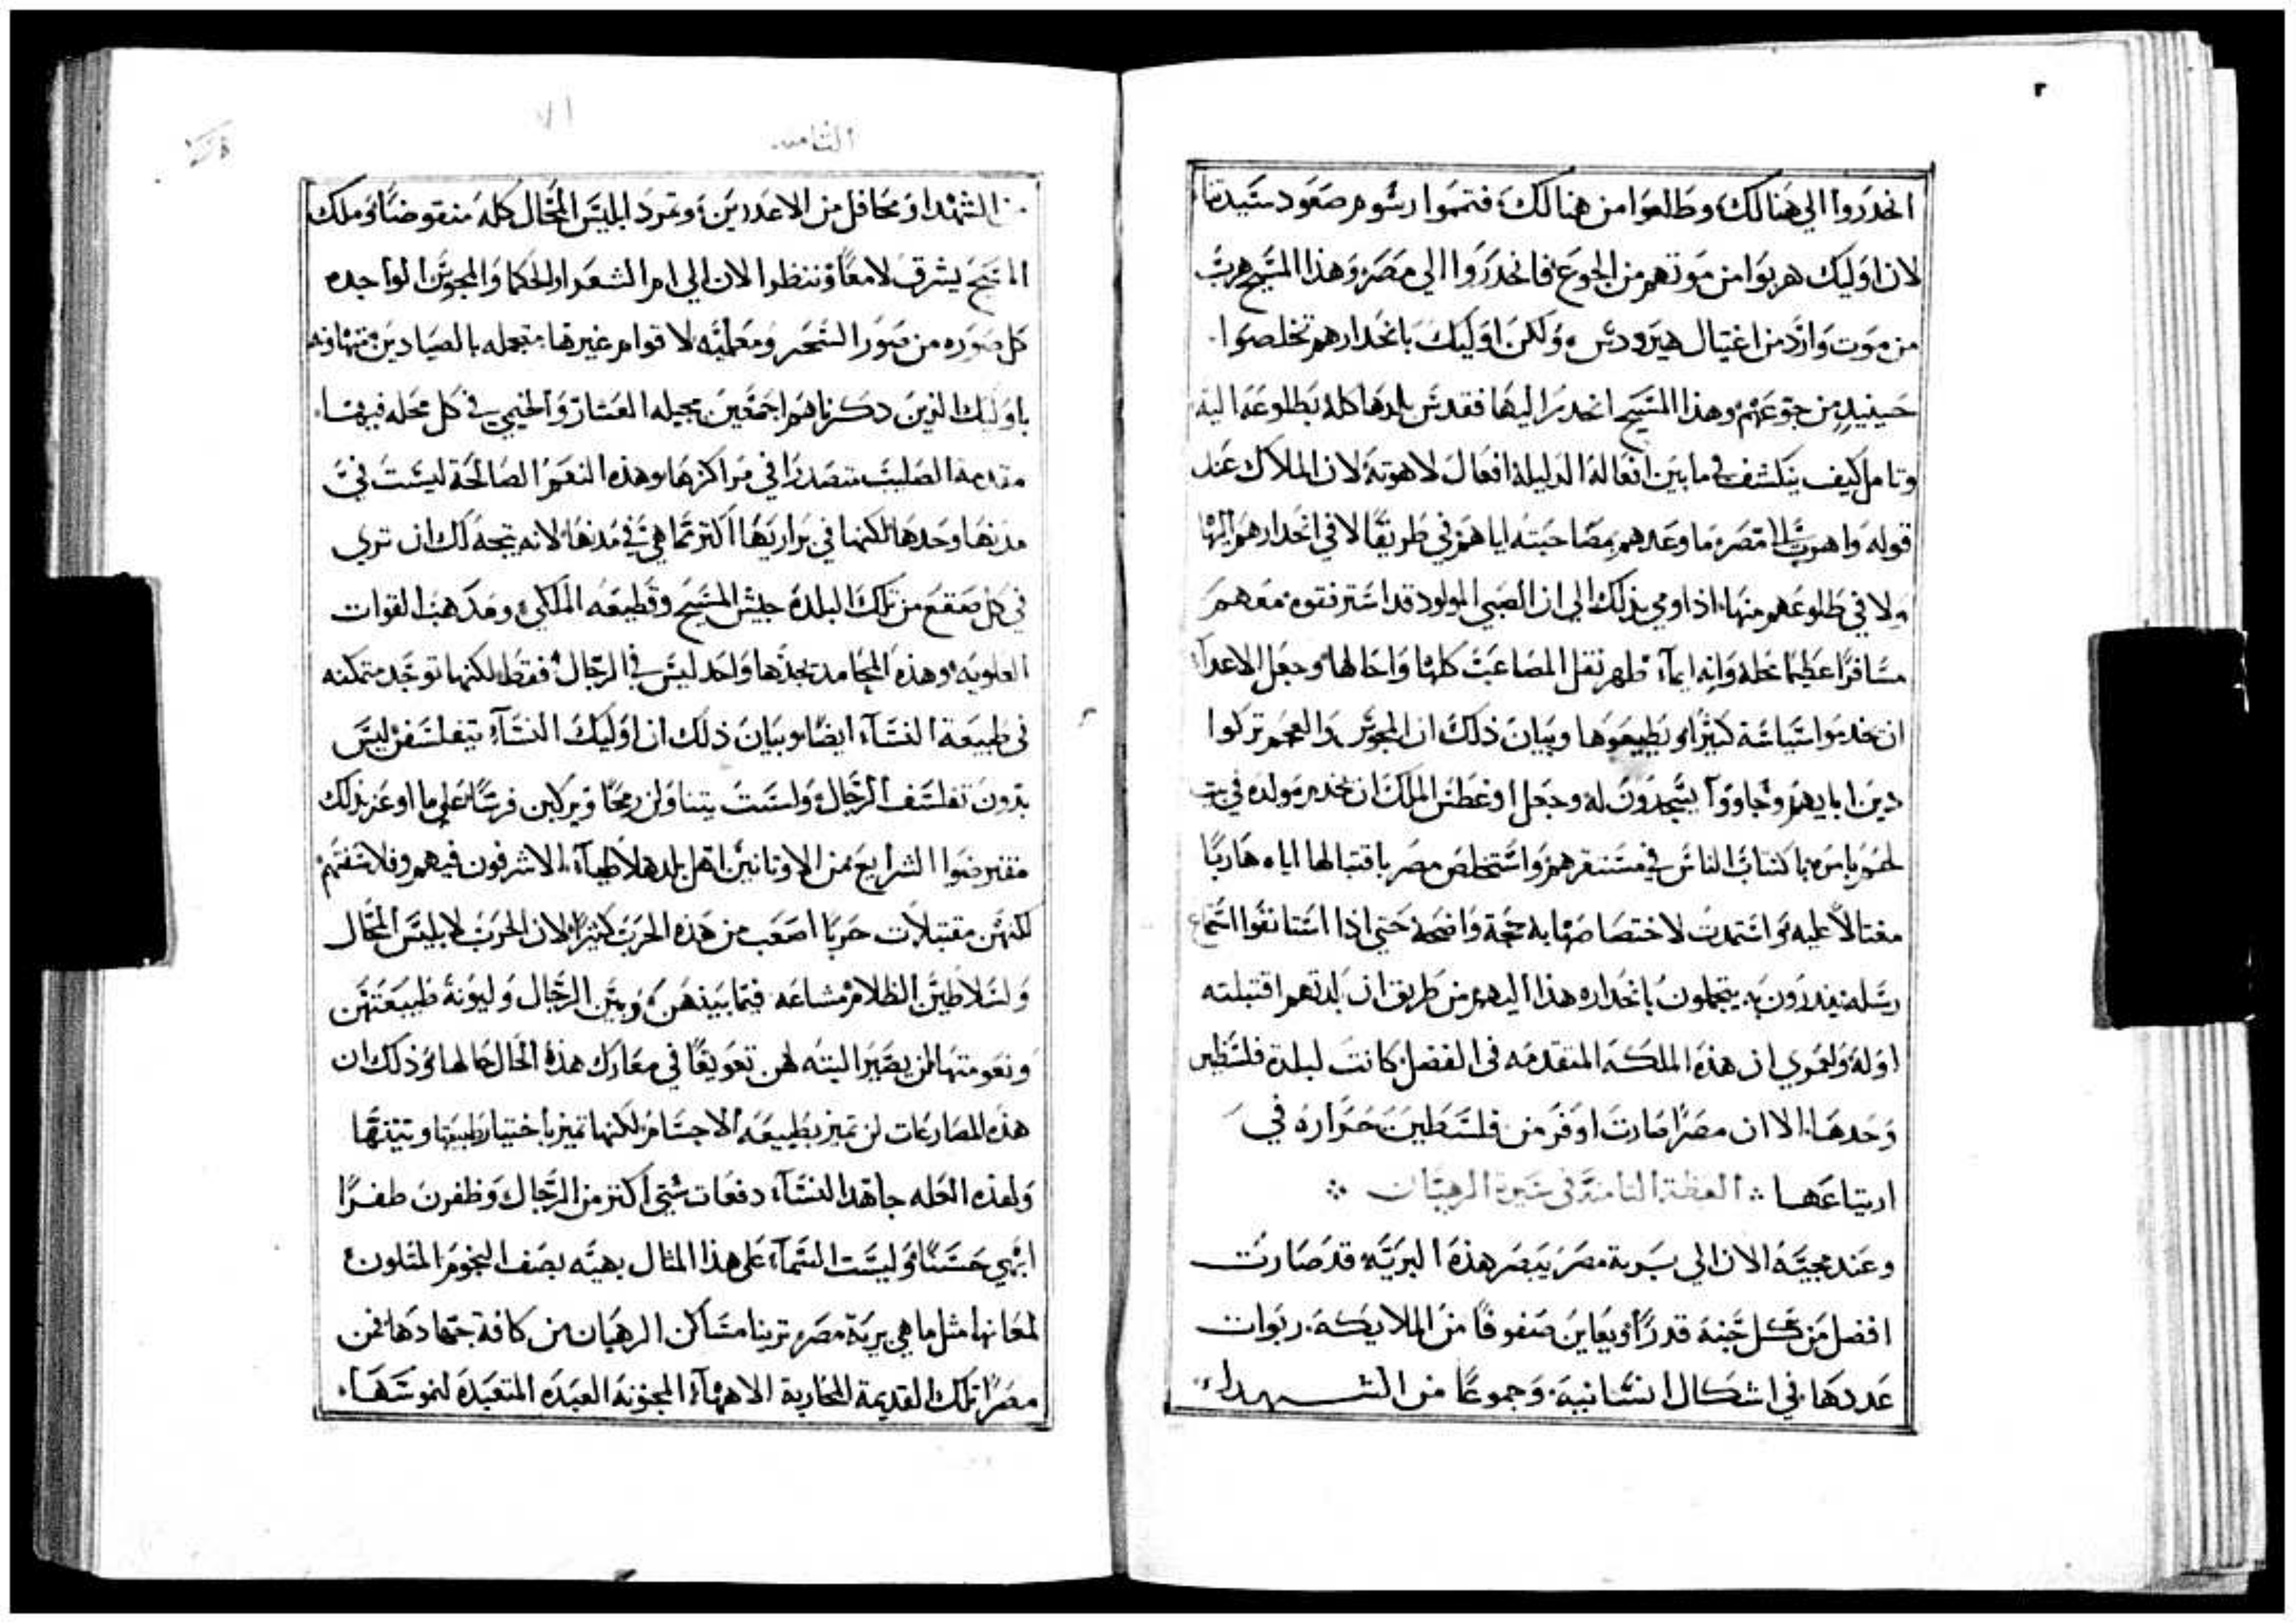 ٢
انحدروا الي هنالك وطالعوا من هنالك فتمموا رسوم صعود سيدنا
لان اوليك هربوا من موتهم من الجوع فانحدروا الي مصر وهذا المسيح هرب
من موت وارد من اغتيال هيرودس ولكن اوليك بانحدارهم تخلصوا
حينيذ من جوعهم وهذا المسيح انحدر اليها فقدس بلدها كله بطلوعه اليه
وتامل كيف ينكشف في ما بين افعاله الدليلة افعال لاهوته لان الملاك عند
قوله واهرب الي مصر ما وعدهم بمصاحبته اياهم في طريقا لا في انحدارهم اليها
ولا في طلوعهم منها اذ اومي بذلك الي ان الصبي المولود قد استرفقوه معهم
مسافرا عظيما محله وانه ايماء ظهر نقل المصاعب كلها واحالها وجعل الاعداء
ان يخدموا سياسة كثيرا ويطيعوها وبيان ذلك ان المجوس والعجم تركوا
دين ابايهم وجاووا يسجدون له وجعل اوغسطس الملك ان يخدم مولده في بيت
لحم بامره باكتتاب الناس في مستقرهم واستخلص مصر باقتبالها اياه هاربا
مغتالا عليه واستمدت لاختصاصها به حجة واضحة حتي اذا استانفوا استماع
رسله ينذرون به يتجملون بانحداره هذا اليهم من طريق ان بلدتهم اقتبلته
اوله ولعمري ان هذه الملكه المتقدمه في الفضل كانت لبلدة فلسطين
وحدها الا ان مصرا صارت اوفر من فلسطين حراره في
ارتياعها ⁘ العظة الثامنة في سيرة الرهبان ⁘
وعند مجيته الان الي برية مصر يبصر هذه البريه قد صارت
افضل من كل جنة قدرا ويعاين صفوفا من الملايكه ربوات
عددها في اشكال انسانيه وجموعا من الشهداء
الثامنه
الشهدا ومحافل من الاعدرين وتمرد ابليس المحال كله منقوضا وملك
المسيح يشرق لامعا وننظر الان الي ام الشعرا والحكما والمجوس الواجده
كل صوره من صور السحر ومعلميه لاقوام غيرها متجمله بالصيادين متهاونه
باوليك الذين ذكرناهم اجمعين مجيله العشار والخيمي في كل محله فيها
مقدمة الصليب متصدرا في مراكزها وهذه النعم الصالحة ليست في
مدنها وحدها لكنها في براريها اكثر مما هي في مدنها لانه يتجه لك ان تري
في كل صقع من تلك البلدة جيش المسيح وقطيعه الملكي ومذهب القوات
العلويه وهذه المحامد تجدها واحد ليس في الرجال فقط لكنها توجد متمكنه
في طبيعة النساء ايضا وبيان ذلك ان اوليك النساء يتفلسفن ليس
بدون تفلسف الرجال ولست يتناولن رمحا ويركبن فرسا علي ما اوعز بذلك
مفترضوا الشرايع من الاوثانيين اهل بلدهلاطياء الاشرفون فيهم وفلاسفتهم
لكنهن مقتبلات حربا اصعب من هذه الحرب كثيرا لان الحرب لابليس المحال
ولسلاطين الظلام مشاعه فيما بينهن وبين الرجال وليونة طبيعتهن
ونعومتها لن يصير البته لهن تعويقا في معارك هذه الحال حالها وذلك ان
هذه المصارعات لن تميز بطبيعه الاجسام لكنها تميز باختيار طبيتها ونيتها
ولهذه العله جاهد النساء دفعات شتي اكثر من الرجال وظفرن ظفرا
ابهي حسنا وليست السماء علي هذا المثال بهيه بصف النجوم المتلون
لمعانها مثل ما هي برية مصر ترينا مساكن الرهبان من كافة جهادها فمن
مصرا تلك القديمة المحاربة الاهها المجنونة العبده المتعبدة لنموسها